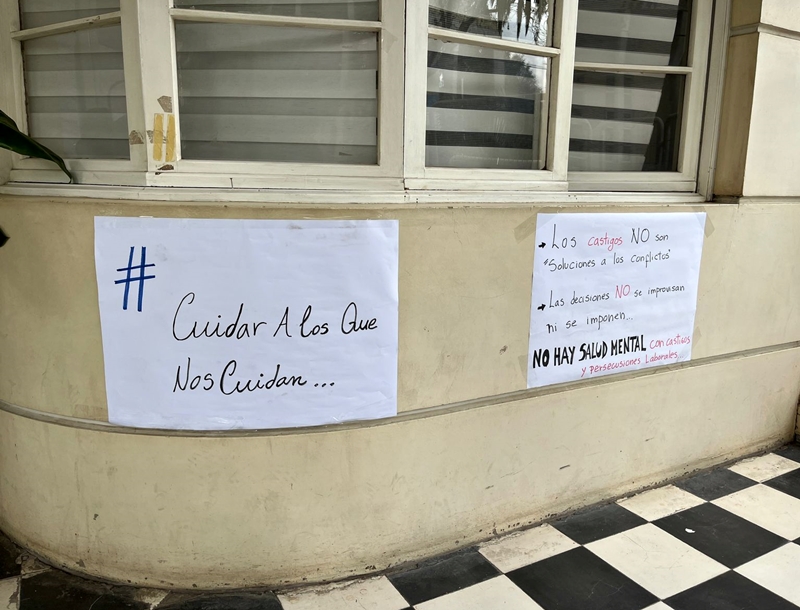 #
Cuidar A los Que
Nos Cuidan...
→ Los castigos NO son
"Soluciones a los conflictos"
→ Las decisiones NO se improvisan
ni se imponen...
NO HAY SALUD MENTAL con castigos
y persecusiones Laborales.